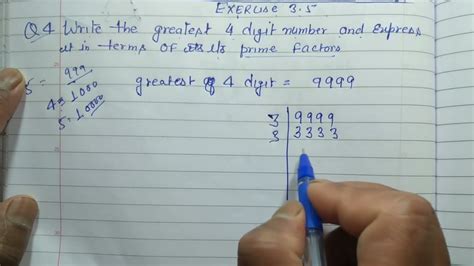 EXERCISE 3.5
Q4 Write the greatest 4 digit number and Express
it in terms of its prime factors
999
5=
4= 1000
5= 10000
greatest 4 digit = 9999
3 9999
3 3333